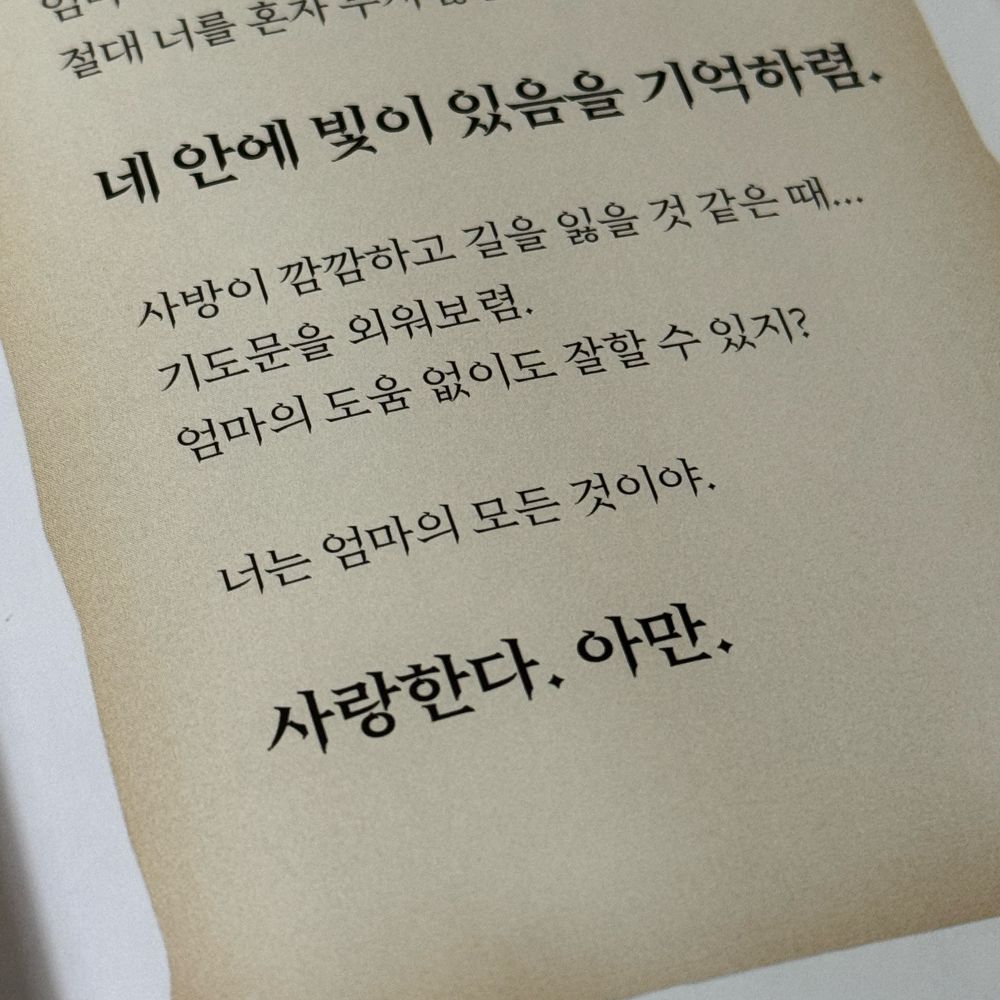 절대 너를 혼자
네 안에 빛이 있음을 기억하렴.
사방이 깜깜하고 길을 잃을 것 같은 때...
기도문을 외워보렴.
엄마의 도움 없이도 잘할 수 있지?
너는 엄마의 모든 것이야.
사랑한다. 아만.